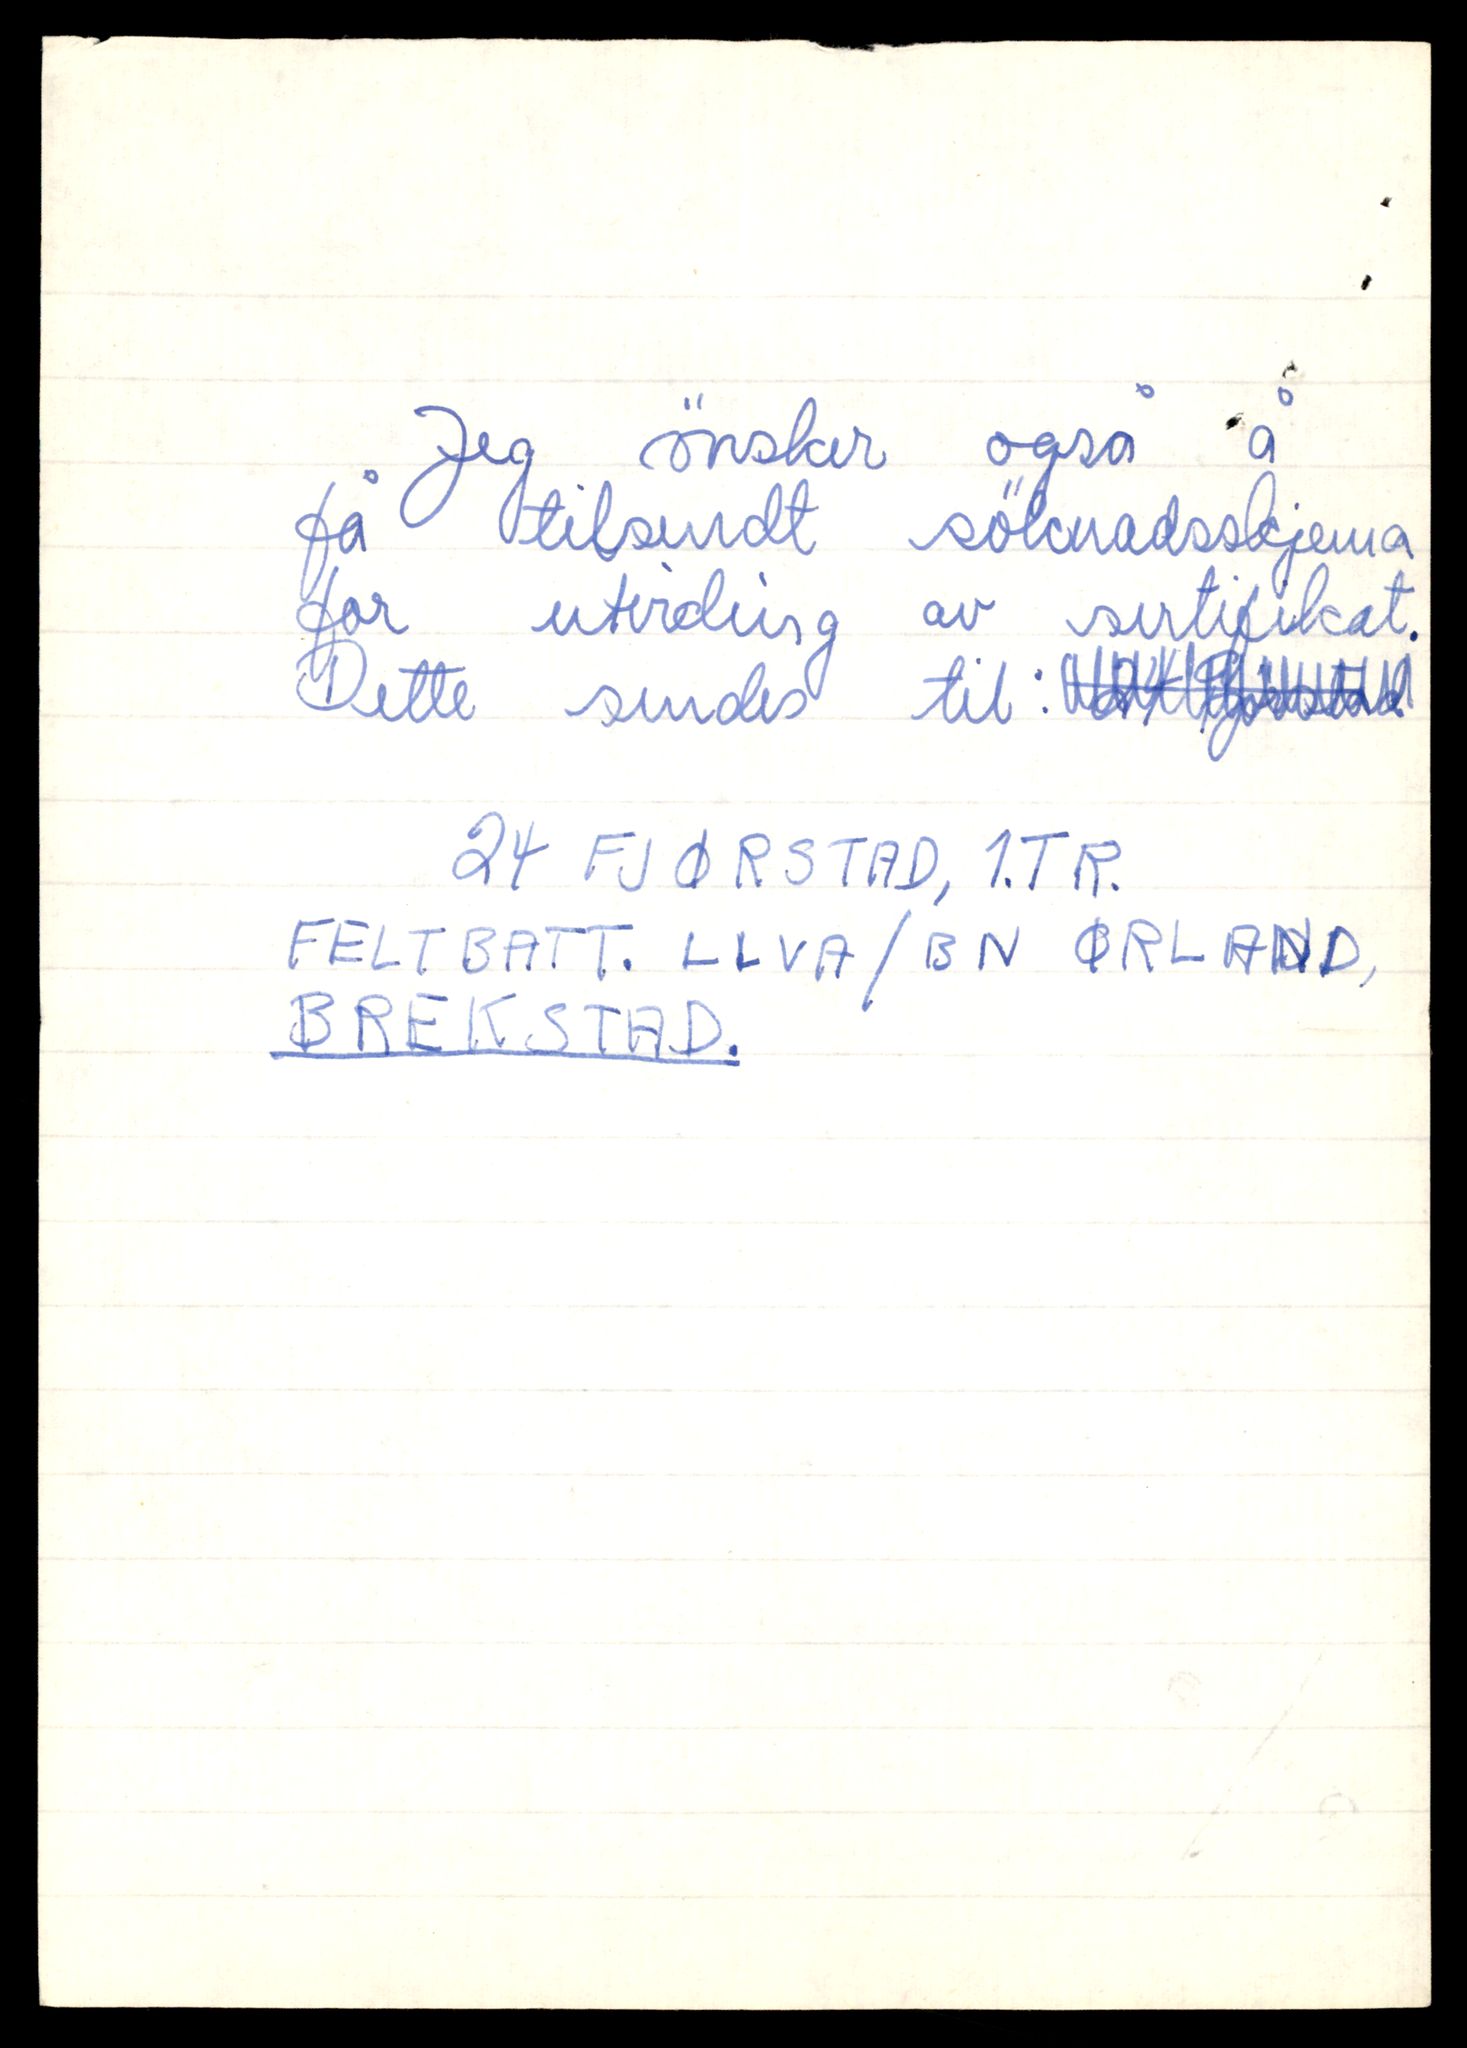 Jeg önsker også å
få tilsendt söknadsskjema
for utvirding av sertifikat.
Dette sendes til: 24 Fjörstad
24 FJØRSTAD, 1.TR.
FELTBATT. LLVA/BN ØRLAND,
BREKSTAD.